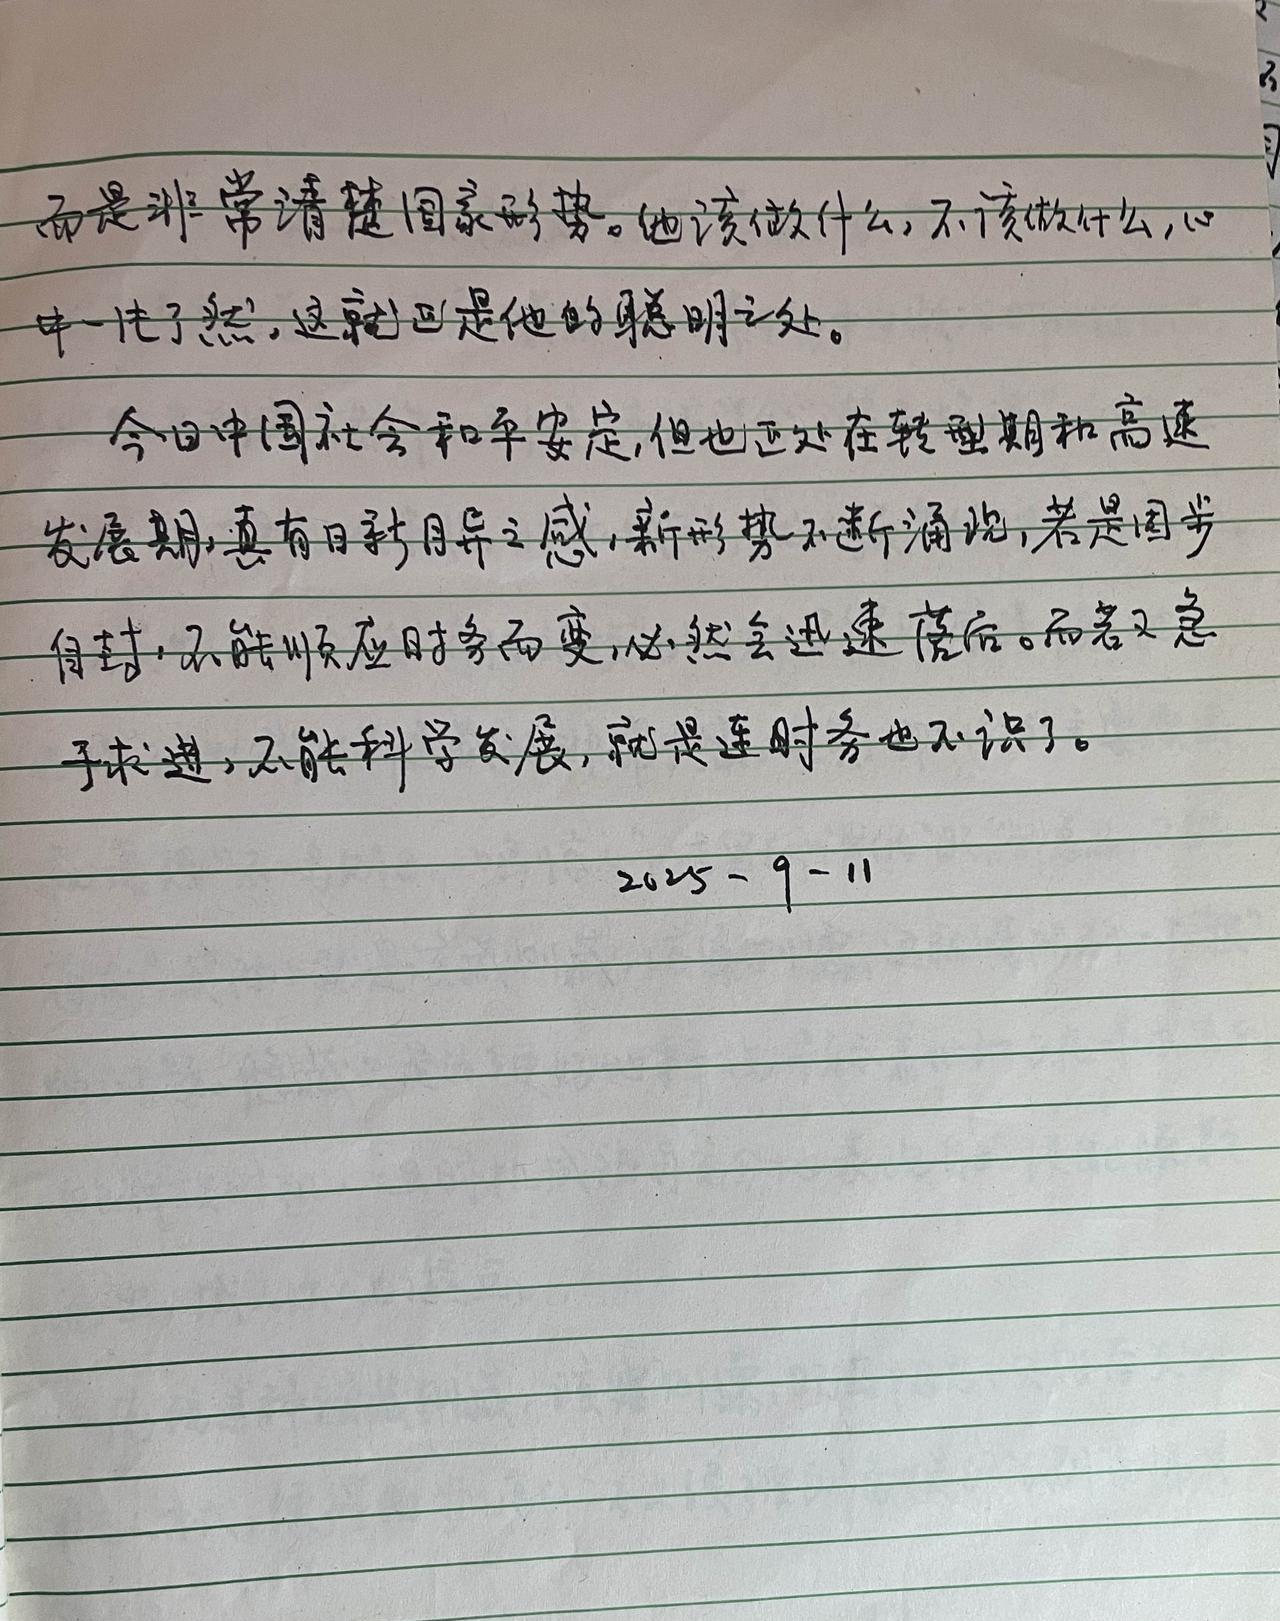 而是非常清楚国家形势。他该做什么,不该做什么,心
中一片了然,这就正是他的聪明之处。
今日中国社会和平安定,但也正处在转型期和高速
发展期,真有日新月异之感,新形势不断涌现,若是固步
自封,不能顺应时务而变,必然会迅速落后。而若又急
于求进,不能科学发展,就是连时务也不识了。
2025-9-11